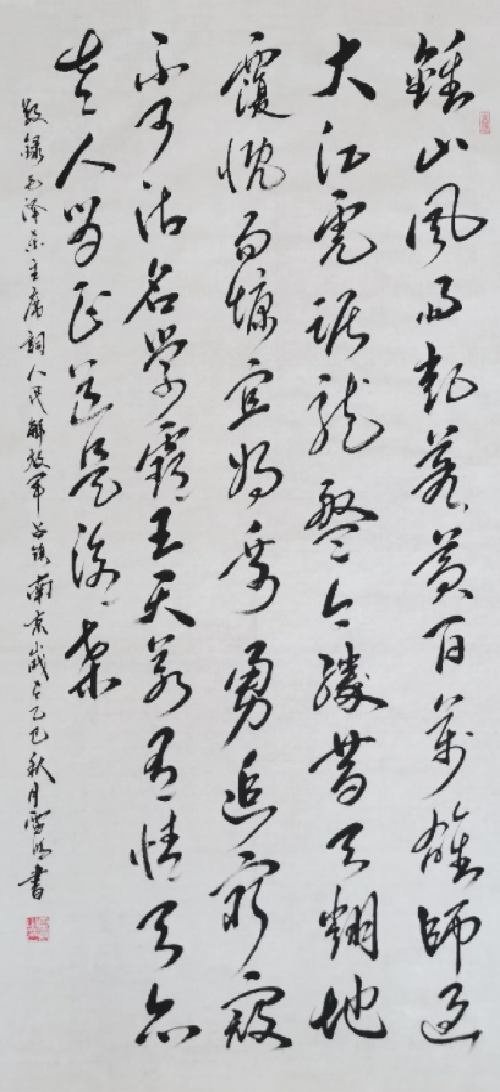 鍾山風雨起蒼黄百萬雄師過
大江虎踞龍盤今勝昔天翻地
覆慨而慷宜將剩勇追窮寇
不可沽名學霸王天若有情天亦
老人間正道是滄桑
敬録毛泽东主席詞人民解放軍占領南京歲在乙巳秋月雪書